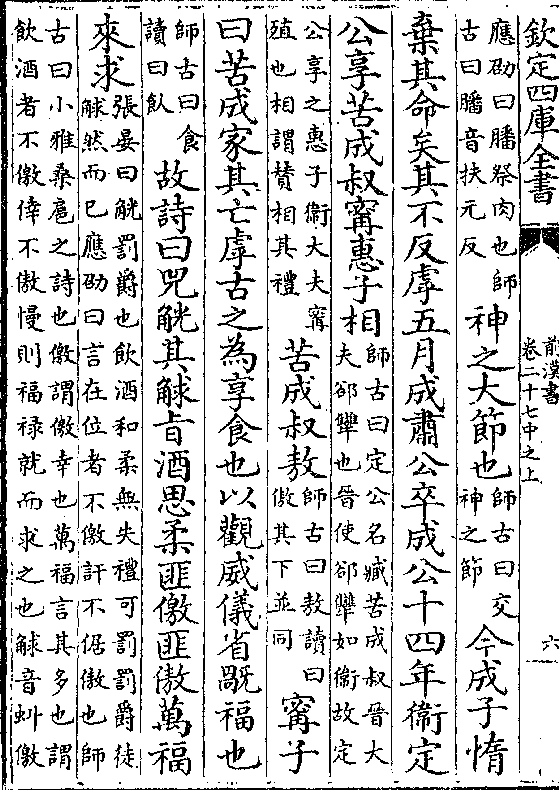 欽定四庫全書
前漢書
卷二十七中之上
六
應劭曰膰祭肉也師
古曰膰音扶元反
神之大節也
師古曰交
神之節
今成子惰
棄其命矣其不反虖五月成肅公卒成公十四年衛定
公享苦成叔甯惠子相
師古曰定公名臧苦成叔晉大
夫郤犨也晉使郤犨如衛故定
公享之惠子衛大夫甯
殖也相謂贊相其禮
苦成叔敖
師古曰敖讀曰
傲其下並同
甯子
曰苦成家其亡虖古之為享食也以觀威儀省旤福也
師古曰食
讀曰飤
故詩曰兕觥其觩旨酒思柔匪儌匪傲萬福
來求
張晏曰觥罰爵也飲酒和柔無失禮可罰罰爵徒
觩然而已應劭曰言在位者不儌訐不倨傲也師
古曰小雅桑扈之詩也儌謂儌幸也萬福言其多也謂
飲酒者不儌倖不傲慢則福祿就而求之也觩音虯儌